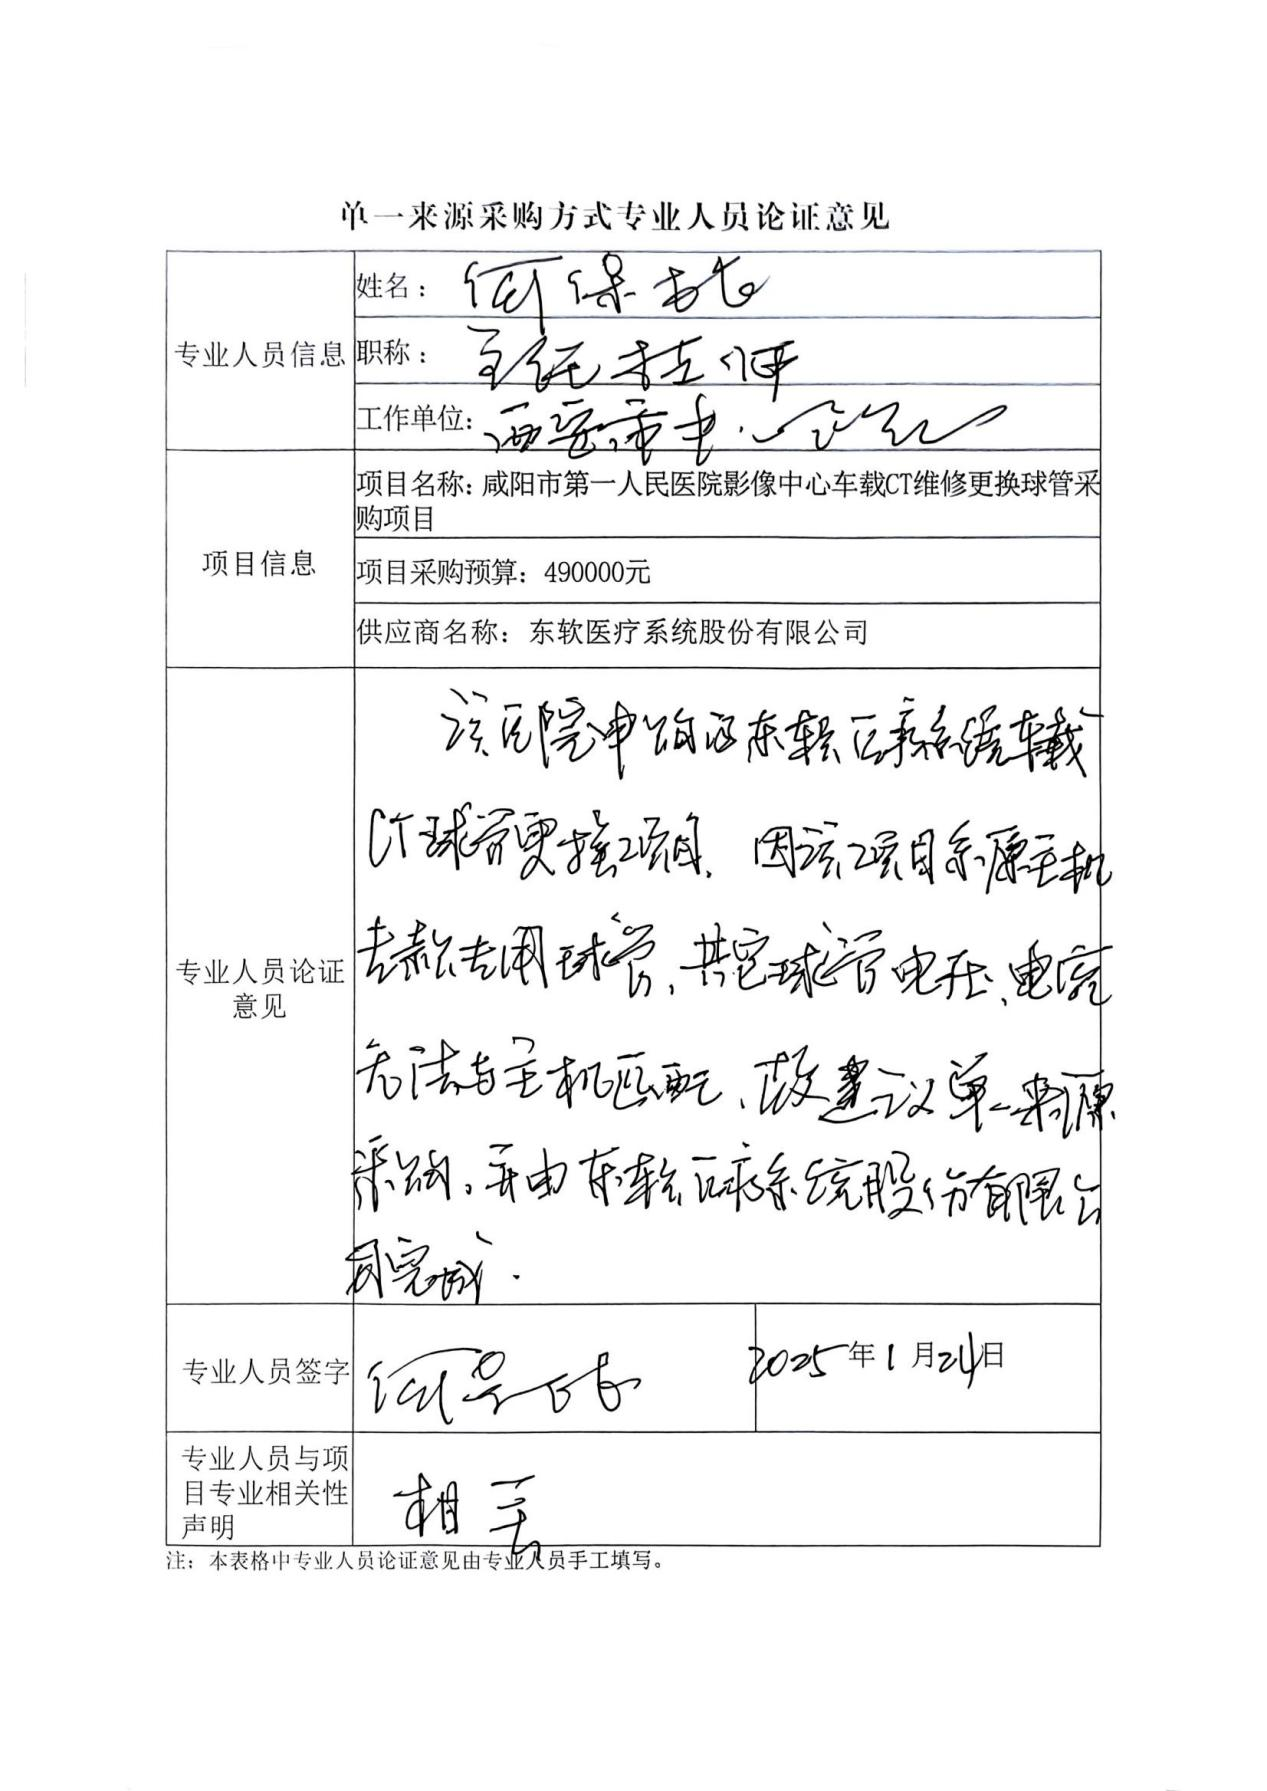 单一来源采购方式专业人员论证意见
专业人员信息
姓名：何保
职称：主任技师
工作单位：西安市中心
项目信息
项目名称：咸阳市第一人民医院影像中心车载CT维修更换球管采
购项目
项目采购预算：490000元
供应商名称：东软医疗系统股份有限公司
专业人员论证
意见
该医院申购的东软医疗系统车载
CT球管更换项目，因该项目系原主机
专用球管，其它球管电压、电流
无法与主机匹配，故建议单一来源
采购，并由东软医疗系统股份有限公
司完成．
专业人员签字
何
2025年1月24日
专业人员与项
目专业相关性
声明
相关
注：本表格中专业人员论证意见由专业人员手工填写。